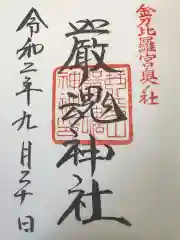 金刀比羅宮奥ノ社
厳魂神社
令和二年九月三十日